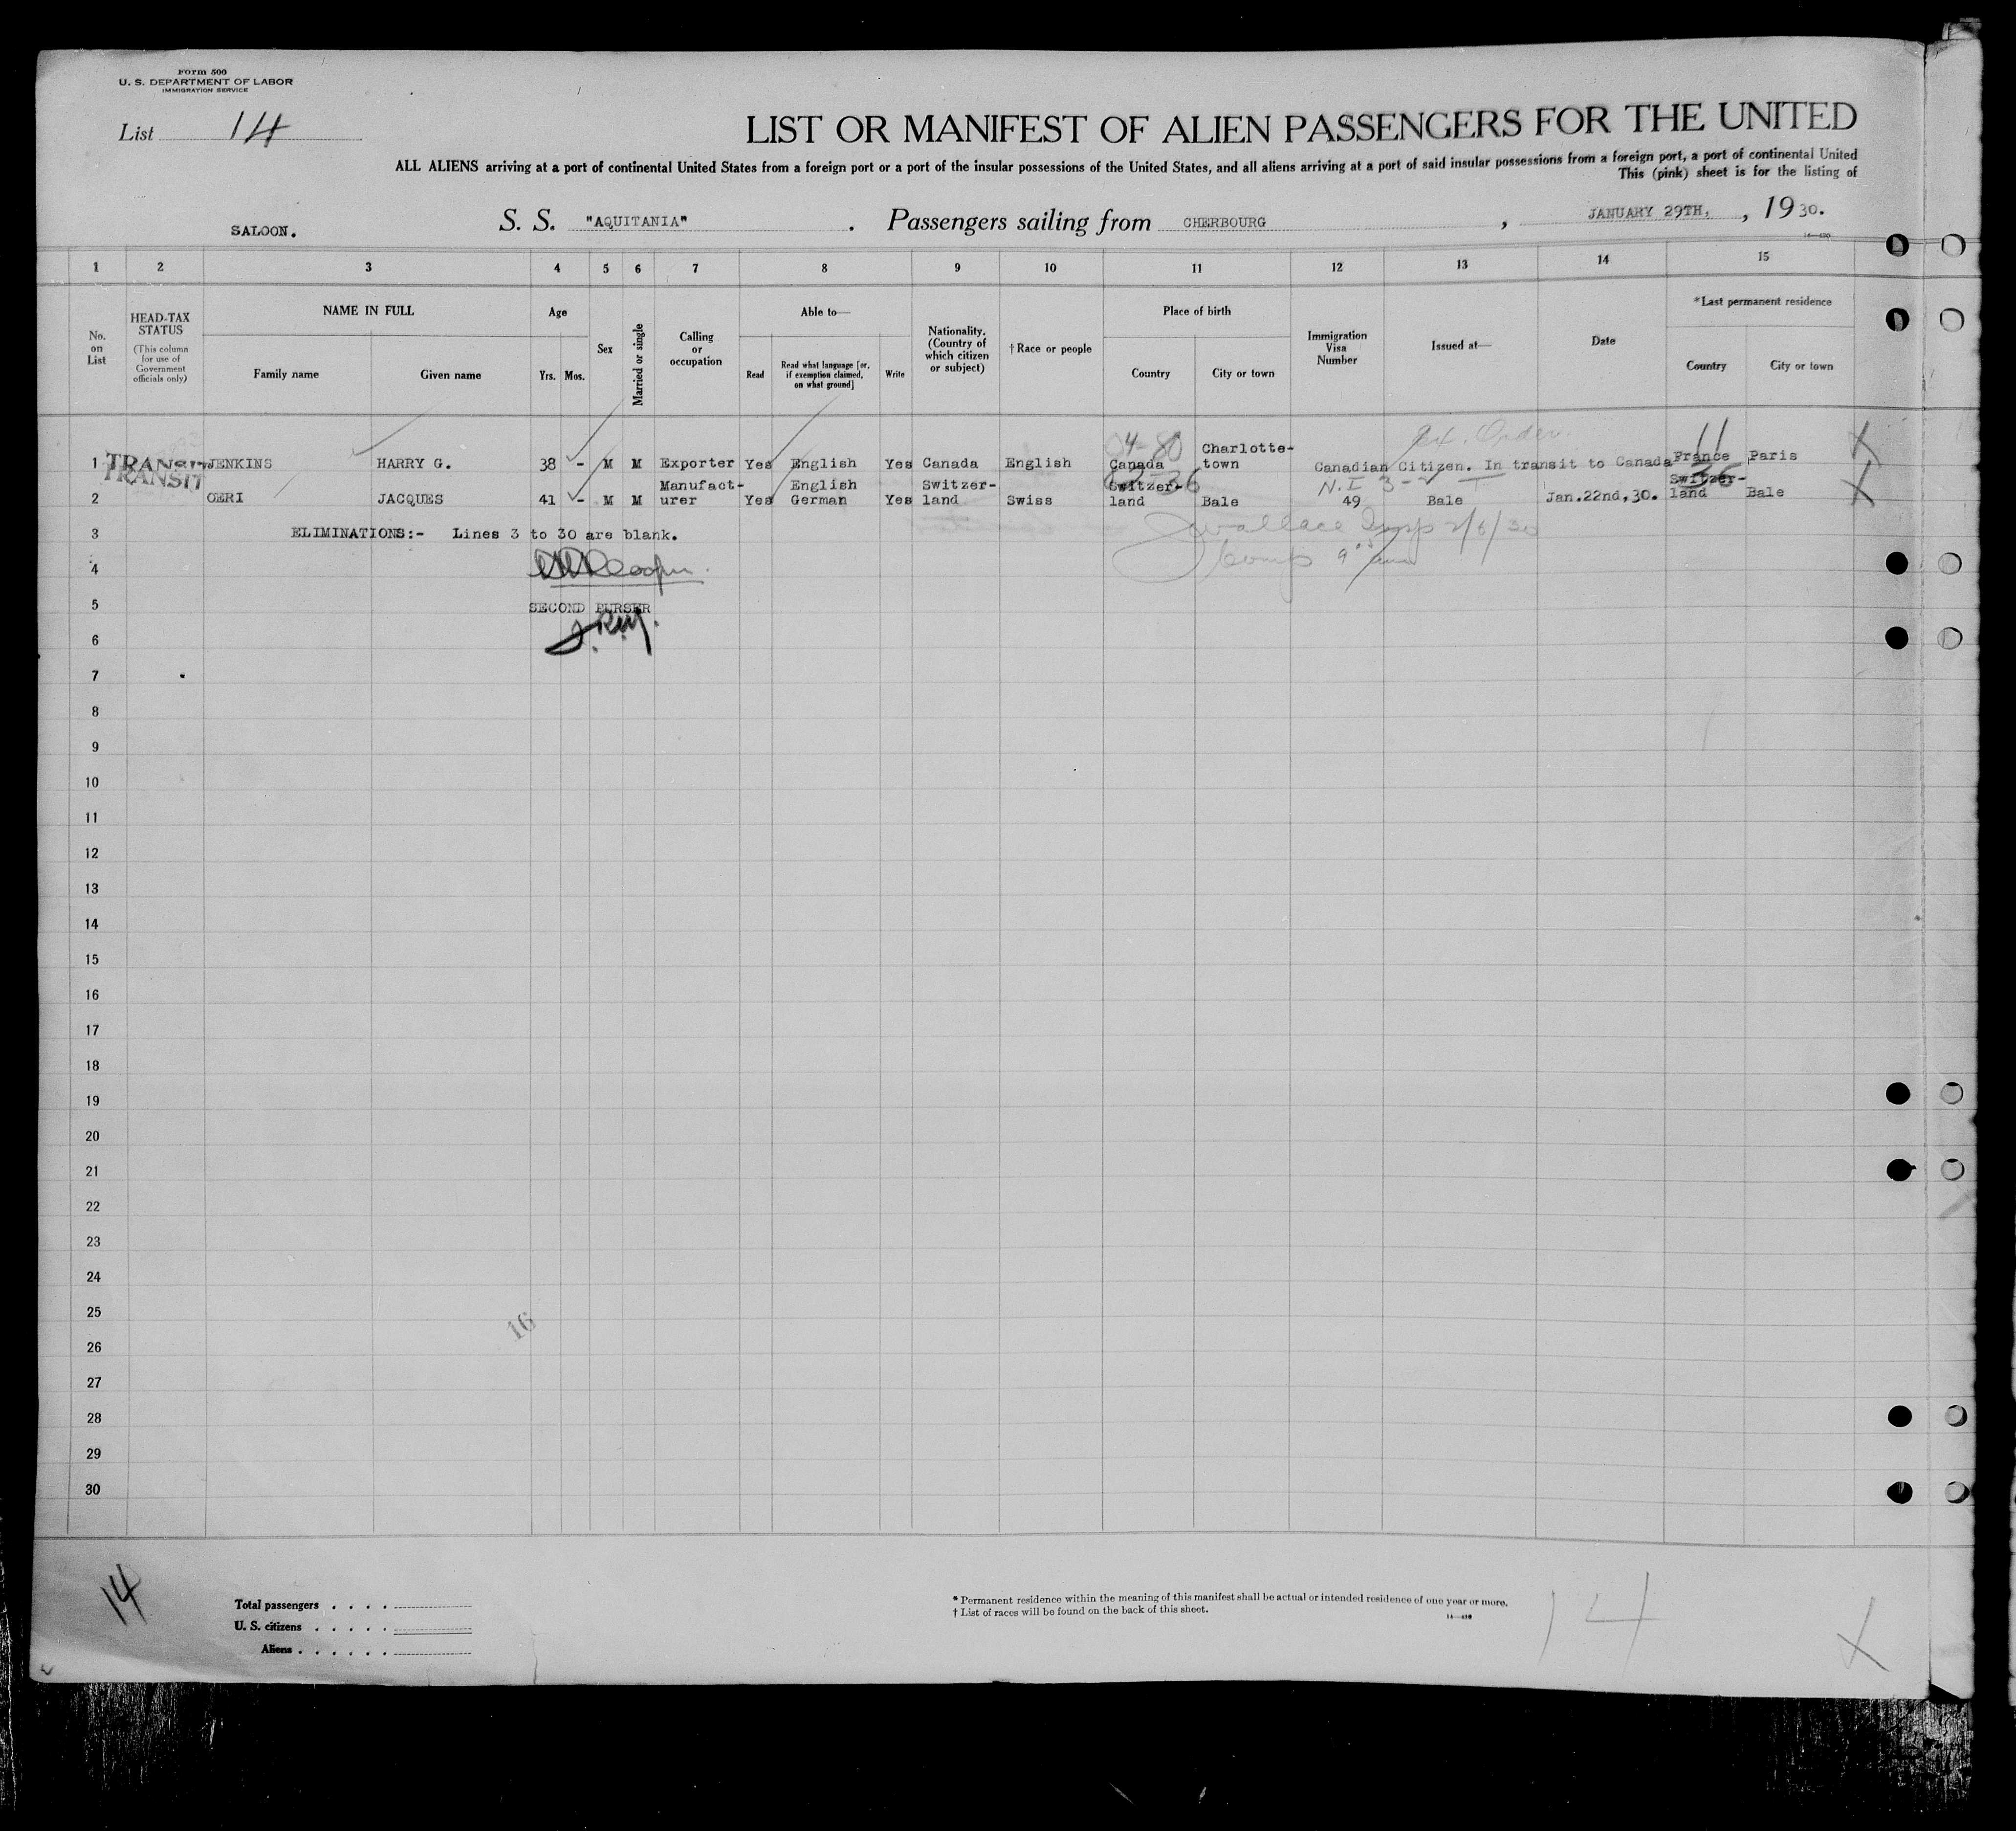 Form 500
U. S. DEPARTMENT OF LABOR
IMMIGRATION SERVICE
List 14
LIST OR MANIFEST OF ALIEN PASSENGERS FOR THE UNITED
ALL ALIENS arriving at a port of continental United States from a foreign port or a port of the insular possessions of the United States, and all aliens arriving at a port of said insular possessions from a foreign port, a port of continental United
This (pink) sheet is for the listing of
SALOON. S. S. "AQUITANIA" . Passengers sailing from CHERBOURG , JANUARY 29TH, , 1930.
1 2 3 4 5 6 7 8 9 10 11 12 13 14 15
No. on List
HEAD-TAX STATUS
(This column for use of Government officials only)
NAME IN FULL
Family name Given name
Age
Yrs. Mos.
Sex
Married or single
Calling or occupation
Able to—
Read
Read what language [or, if exemption claimed, on what ground]
Write
Nationality. (Country of which citizen or subject)
†Race or people
Place of birth
Country City or town
Immigration Visa Number
Issued at—
Date
*Last permanent residence
Country City or town
04-80 11
1 TRANSIT JENKINS HARRY G. 38 - M M Exporter Yes English Yes Canada English Canada Charlotte-town Canadian Citizen. In transit to Canada France Paris
36
TRANSIT
2 OERI JACQUES 41 - M M Manufact-urer Yes English German Yes Switzer-land Swiss Switzer-land Bale 49 Bale Jan.22nd,30. Switzer-land Bale
N.I 3-2
3 ELIMINATIONS:- Lines 3 to 30 are blank.
Wallace Insp 2/6/30
4
5 SECOND PURSER
6
7
8
9
10
11
12
13
14
15
16
17
18
19
20
21
22
23
24
25
16
26
27
28
29
30
14
Total passengers . . . .
U. S. citizens . . . . .
Aliens . . . . . .
* Permanent residence within the meaning of this manifest shall be actual or intended residence of one year or more.
† List of races will be found on the back of this sheet.
14